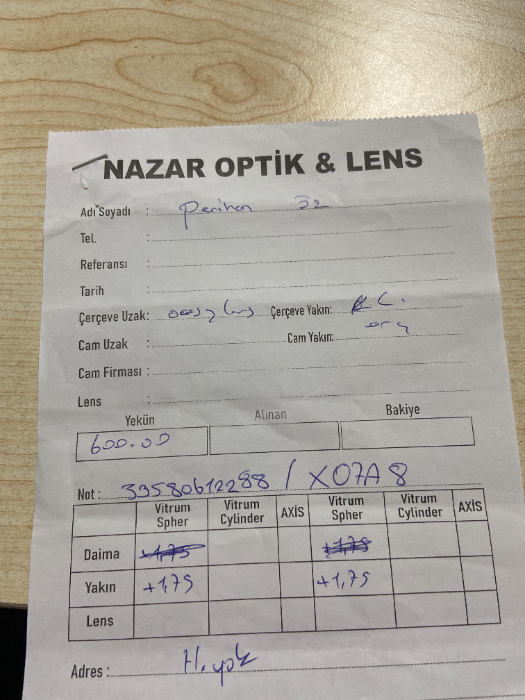 NAZAR OPTİK & LENS
Adı Soyadı : Perihan
Tel. :
Referansı :
Tarih :
Çerçeve Uzak: Çerçeve Yakın:
Cam Uzak : Cam Yakın:
Cam Firması :
Lens :
Yekün Alınan Bakiye
600.00
Not : 33580612288 / X07A8
Vitrum Spher Vitrum Cylinder AXİS Vitrum Spher Vitrum Cylinder AXİS
Daima +1,75 +1,75
Yakın +1,75 +1,75
Lens
Adres :